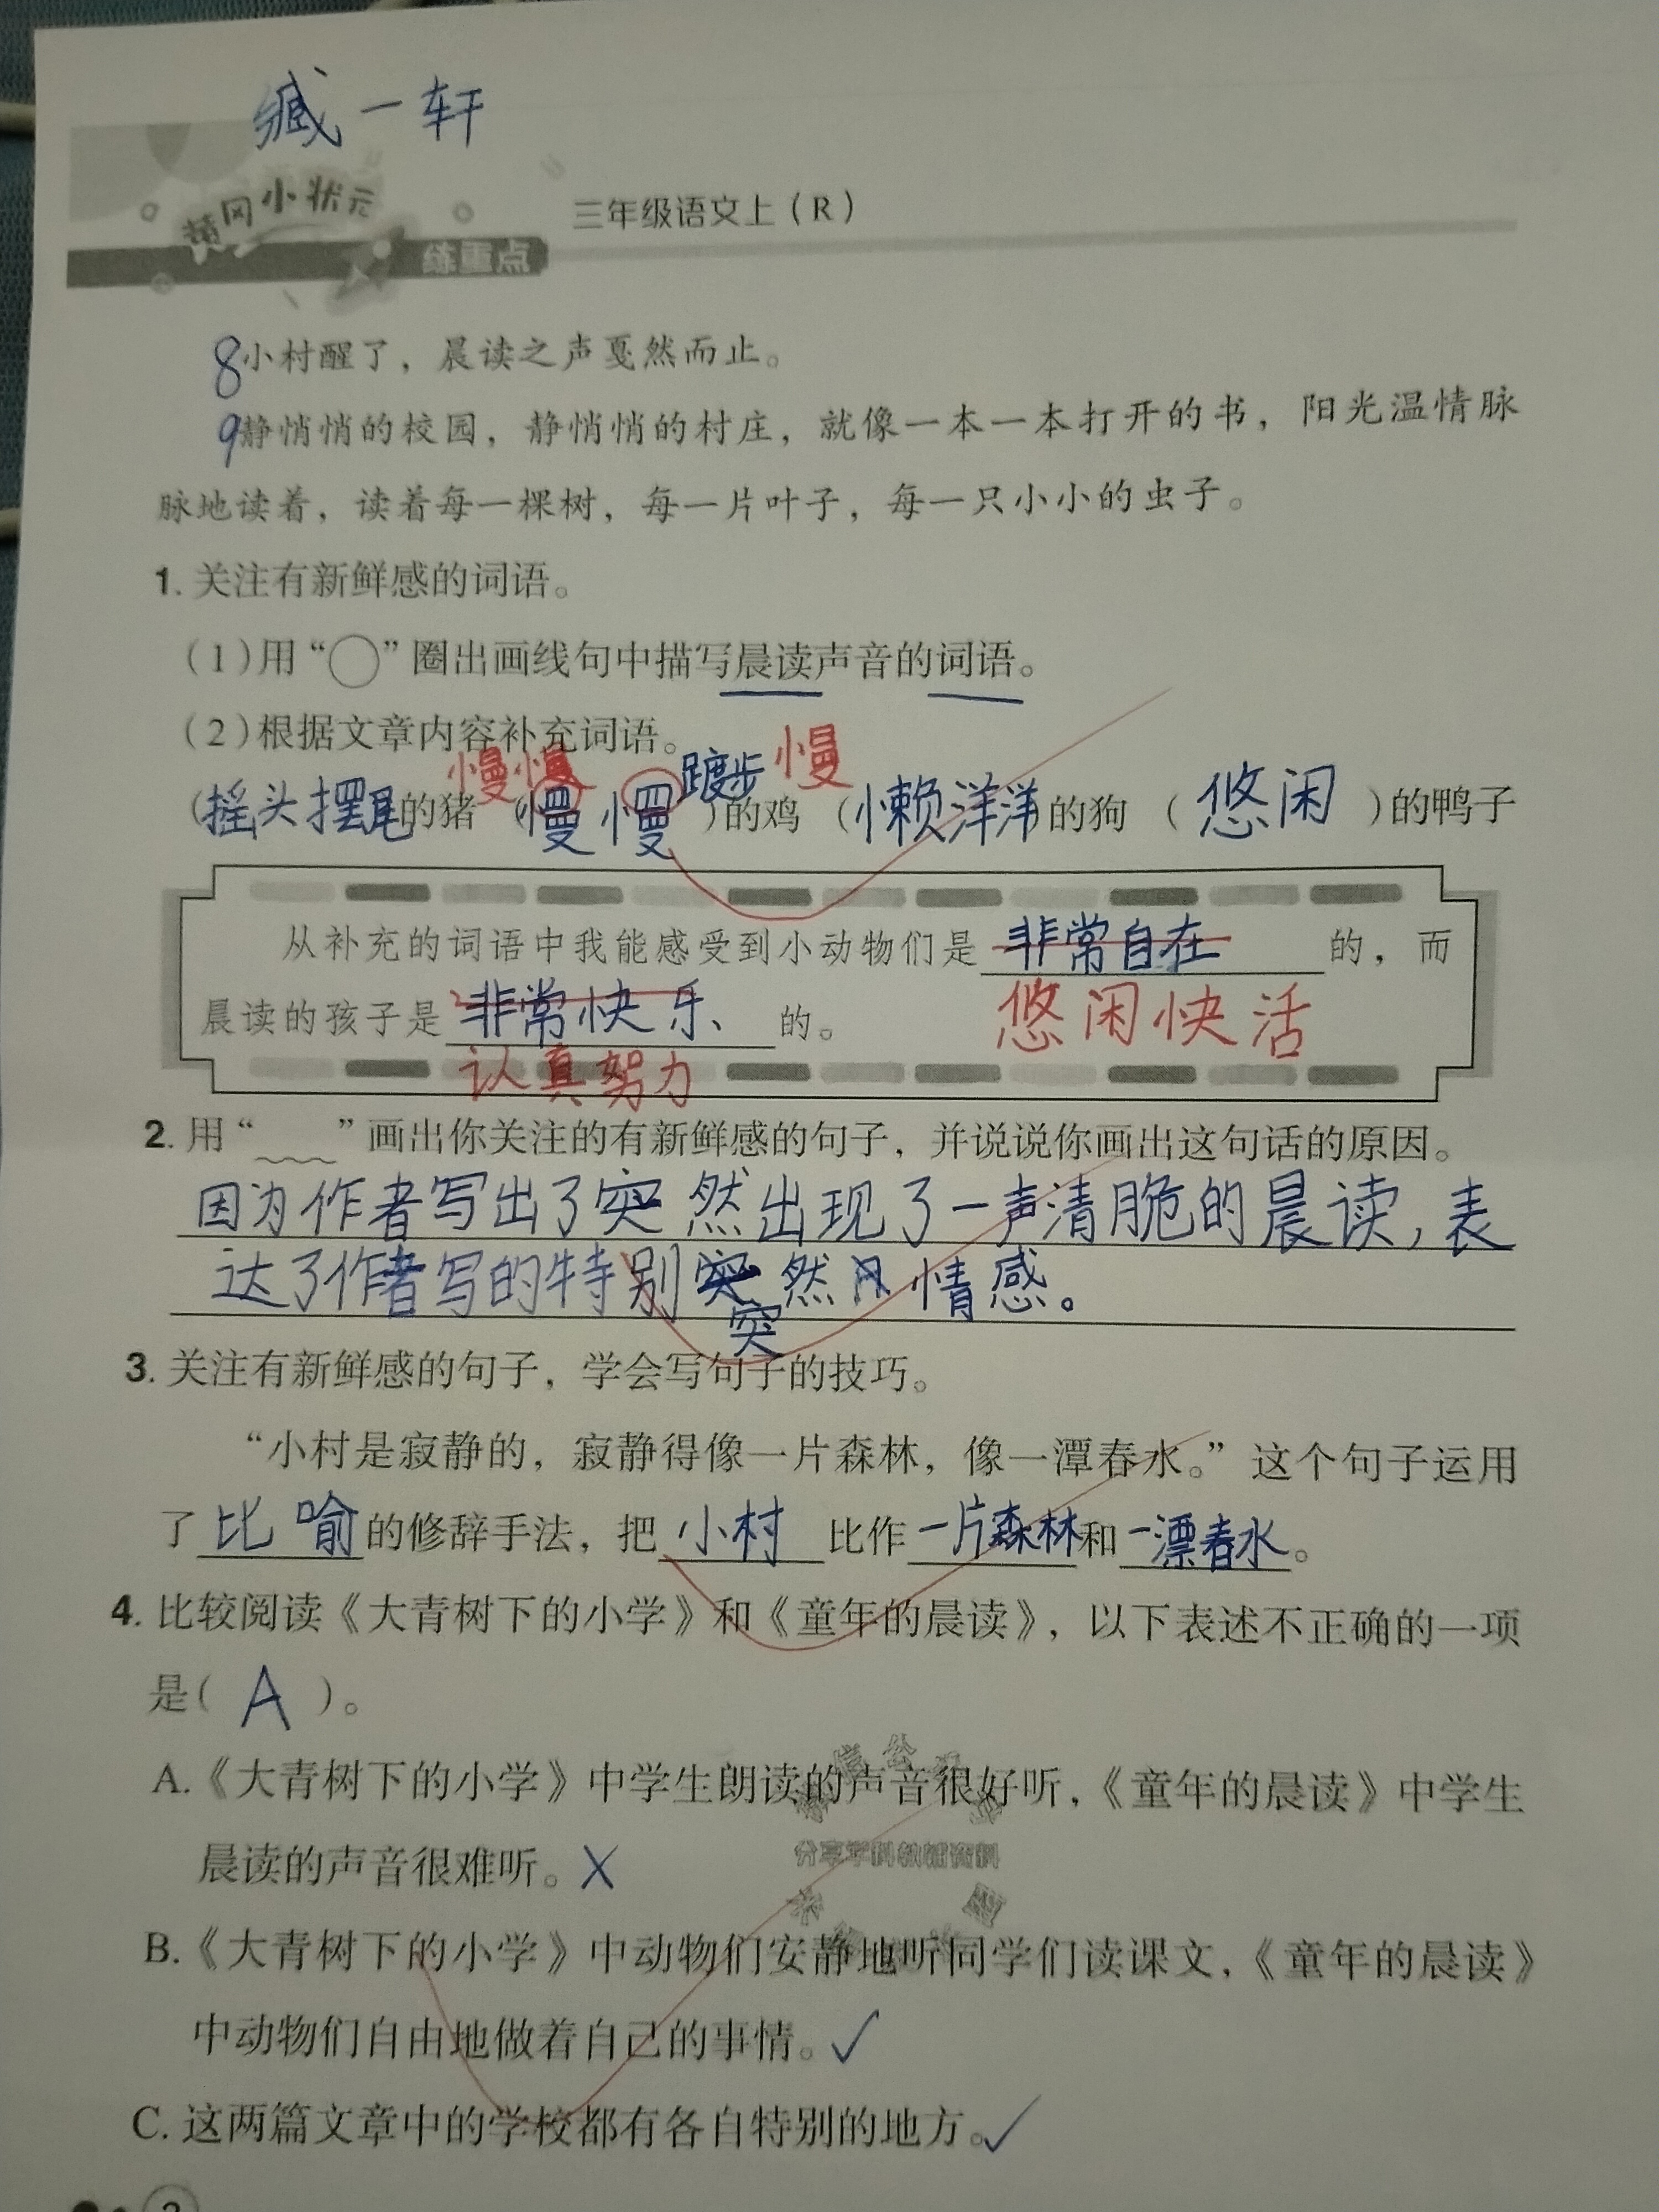 臧一轩
黄冈小状元
练重点
三年级语文上(R)
8小村醒了，晨读之声戛然而止。
9静悄悄的校园，静悄悄的村庄，就像一本一本打开的书，阳光温情脉
脉地读着，读着每一棵树，每一片叶子，每一只小小的虫子。
1. 关注有新鲜感的词语。
(1)用“○”圈出画线句中描写晨读声音的词语。
(2)根据文章内容补充词语。
慢慢 慢
(摇头摆尾的猪 (慢慢踱步)的鸡 (懒洋洋的狗 (悠闲)的鸭子
从补充的词语中我能感受到小动物们是非常自在的，而
晨读的孩子是非常快乐的。 悠闲快活
认真努力
2. 用“﹏﹏”画出你关注的有新鲜感的句子，并说说你画出这句话的原因。
因为作者写出了突然出现了一声清脆的晨读，表
达了作者写的特别突然情感。
突
3. 关注有新鲜感的句子，学会写句子的技巧。
“小村是寂静的，寂静得像一片森林，像一潭春水。”这个句子运用
了比喻的修辞手法，把小村比作一片森林和一漂春水。
4. 比较阅读《大青树下的小学》和《童年的晨读》，以下表述不正确的一项
是( A )。
A.《大青树下的小学》中学生朗读的声音很好听，《童年的晨读》中学生
晨读的声音很难听。X
分享学科教辅资料
B.《大青树下的小学》中动物们安静地听同学们读课文，《童年的晨读》
中动物们自由地做着自己的事情。✓
C. 这两篇文章中的学校都有各自特别的地方。✓